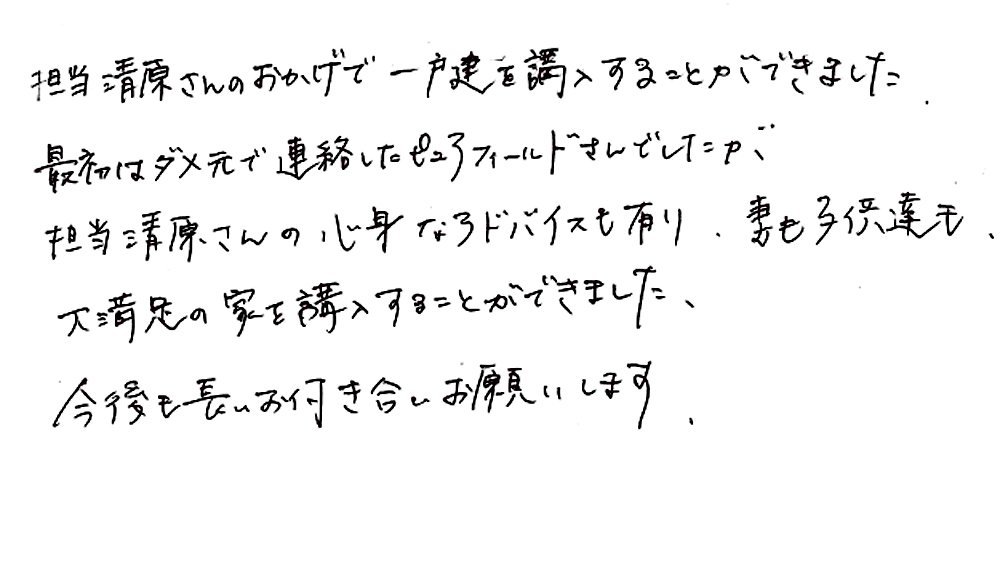 担当清原さんのおかげで一戸建を講入することができました、
最初はダメ元で連絡したピュアフィールドさんでしたが、
担当清原さんの心身なアドバイスも有り、妻も子供達も、
大満足の家を講入することができました、
今後も長いお付き合いお願いします、